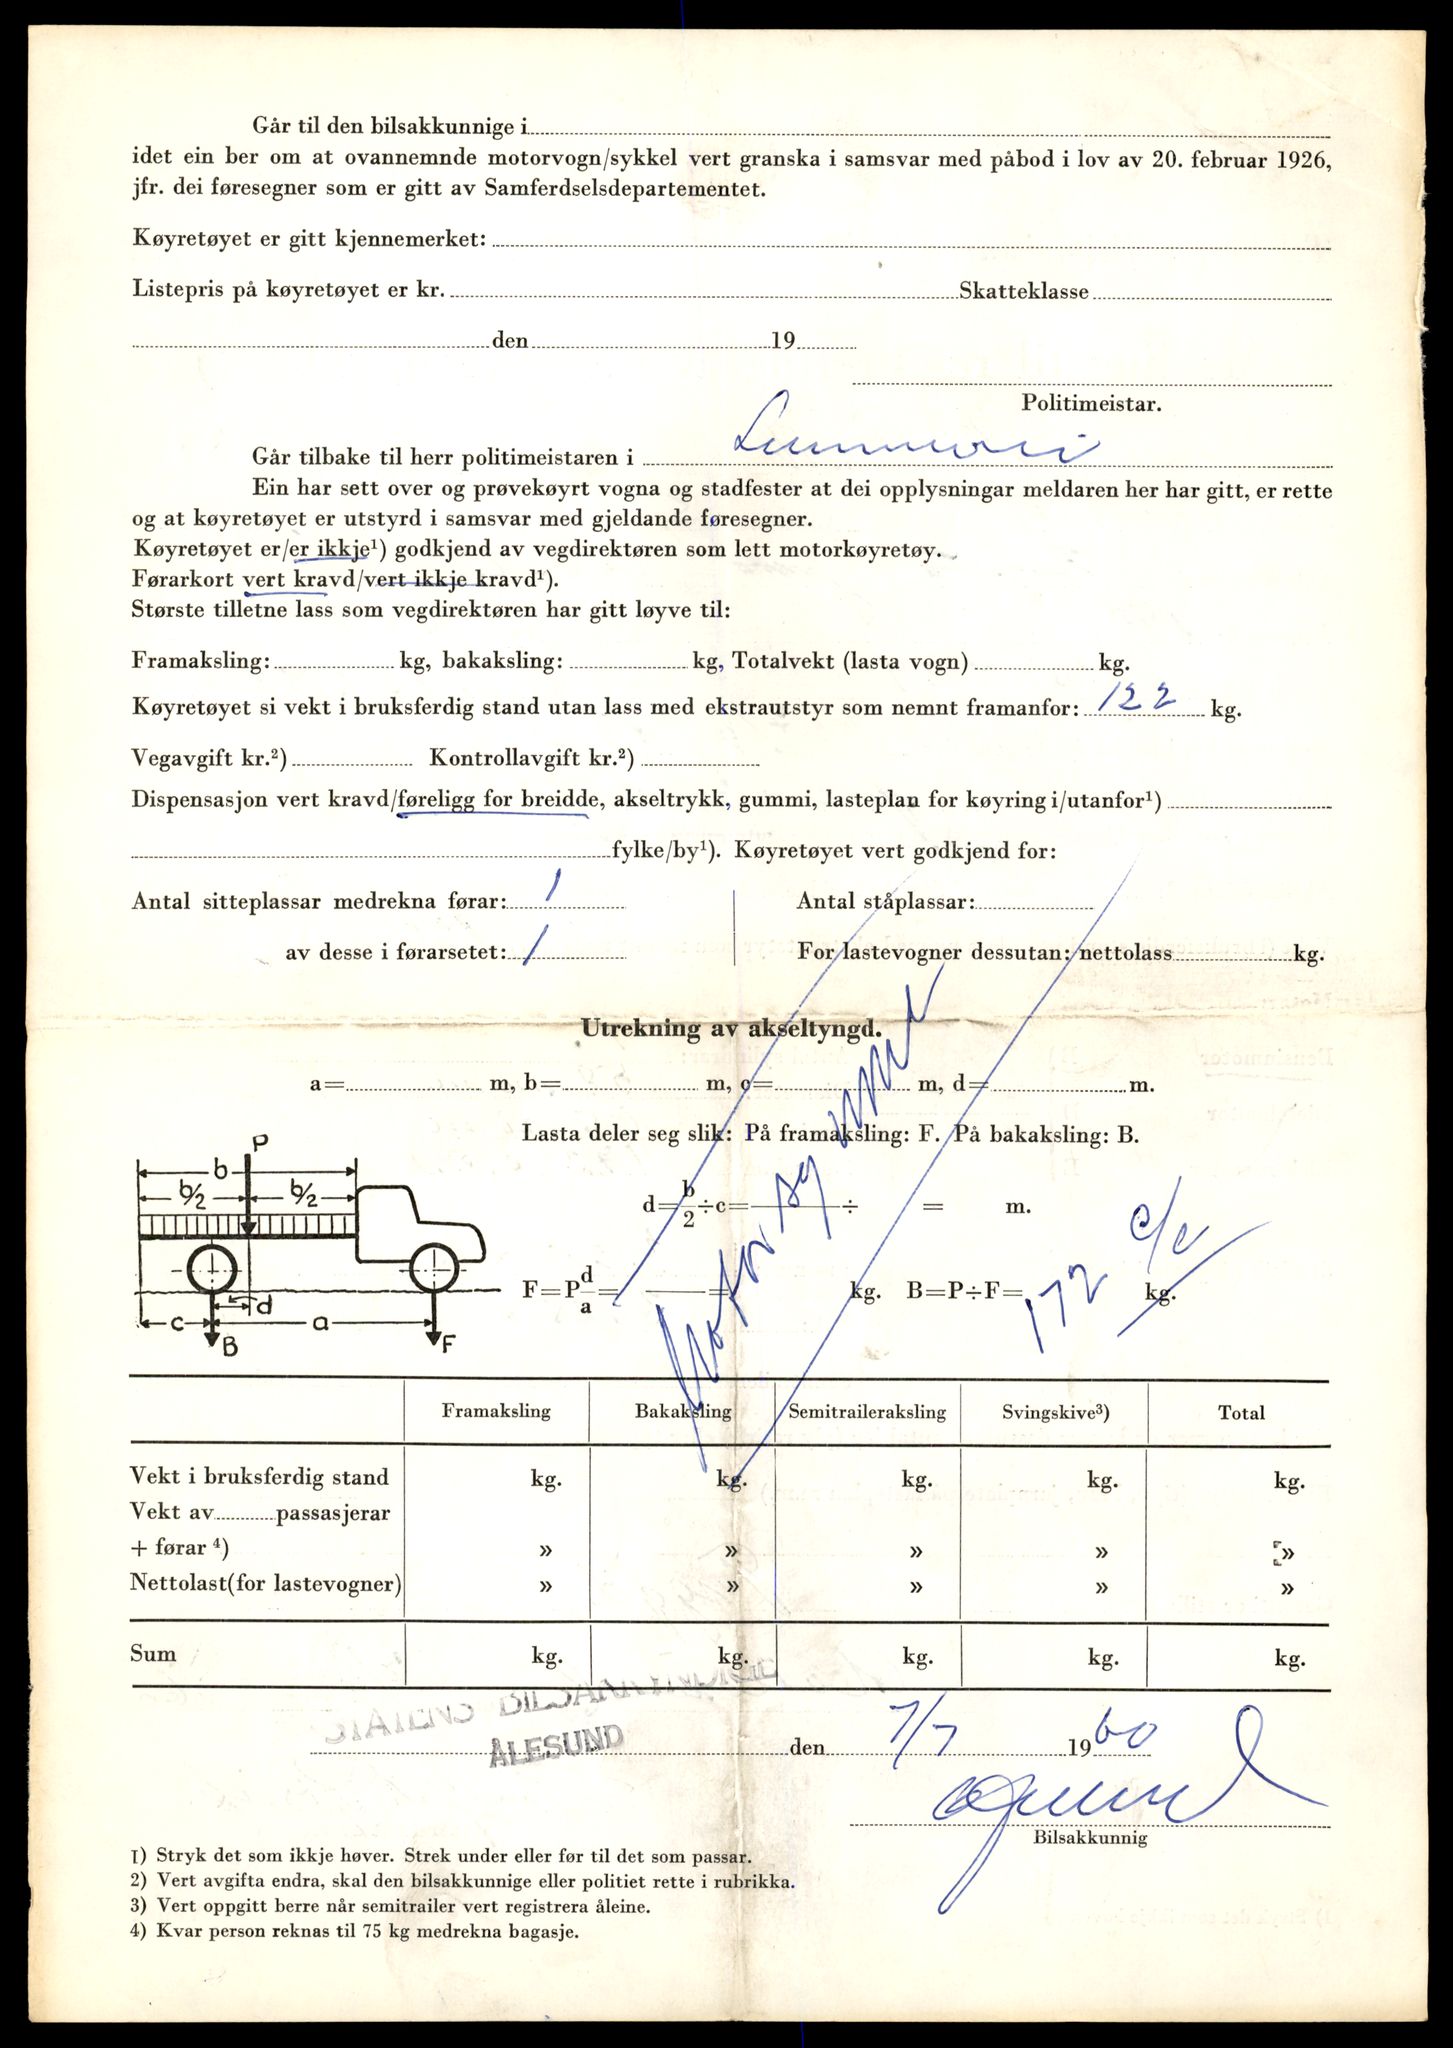 Går til den bilsakkunnige i
idet ein ber om at ovannemnde motorvogn/sykkel vert granska i samsvar med påbod i lov av 20. februar 1926,
jfr. dei føresegner som er gitt av Samferdselsdepartementet.
Køyretøyet er gitt kjennemerket:
Listepris på køyretøyet er kr. Skatteklasse
den 19
Politimeistar.
Går tilbake til herr politimeistaren i
Ein har sett over og prøvekøyrt vogna og stadfester at dei opplysningar meldaren her har gitt, er rette
og at køyretøyet er utstyrd i samsvar med gjeldande føresegner.
Køyretøyet er/er ikkje¹) godkjend av vegdirektøren som lett motorkøyretøy.
Førarkort vert kravd/vert ikkje kravd¹).
Største tilletne lass som vegdirektøren har gitt løyve til:
Framaksling: kg, bakaksling: kg, Totalvekt (lasta vogn) kg.
Køyretøyet si vekt i bruksferdig stand utan lass med ekstrautstyr som nemnt framanfor: 122 kg.
Vegavgift kr.²) Kontrollavgift kr.²)
Dispensasjon vert kravd/føreligg for breidde, akseltrykk, gummi, lasteplan for køyring i/utanfor¹)
fylke/by¹). Køyretøyet vert godkjend for:
Antal sitteplassar medrekna førar: 1 Antal ståplassar:
av desse i førarsetet: 1 For lastevogner dessutan: nettolass kg.
Utrekning av akseltyngd.
a= m, b= m, c= m, d= m.
Lasta deler seg slik: På framaksling: F. På bakaksling: B.
P
b
b/2 b/2
d=b/2÷c= ÷ = m.
F=P d/a= = kg. B=P÷F= kg.
172 c/c
d
c a
B F
Framaksling Bakaksling Semitraileraksling Svingskive³) Total
Vekt i bruksferdig stand kg. kg. kg. kg. kg.
Vekt av passasjerar
+ førar ⁴) » » » » »
Nettolast(for lastevogner) » » » » »
Sum kg. kg. kg. kg. kg.
STATENS BILSAKKUNNIGE
ÅLESUND den 7/7 1960
Bilsakkunnig
1) Stryk det som ikkje høver. Strek under eller før til det som passar.
2) Vert avgifta endra, skal den bilsakkunnige eller politiet rette i rubrikka.
3) Vert oppgitt berre når semitrailer vert registrera åleine.
4) Kvar person reknas til 75 kg medrekna bagasje.